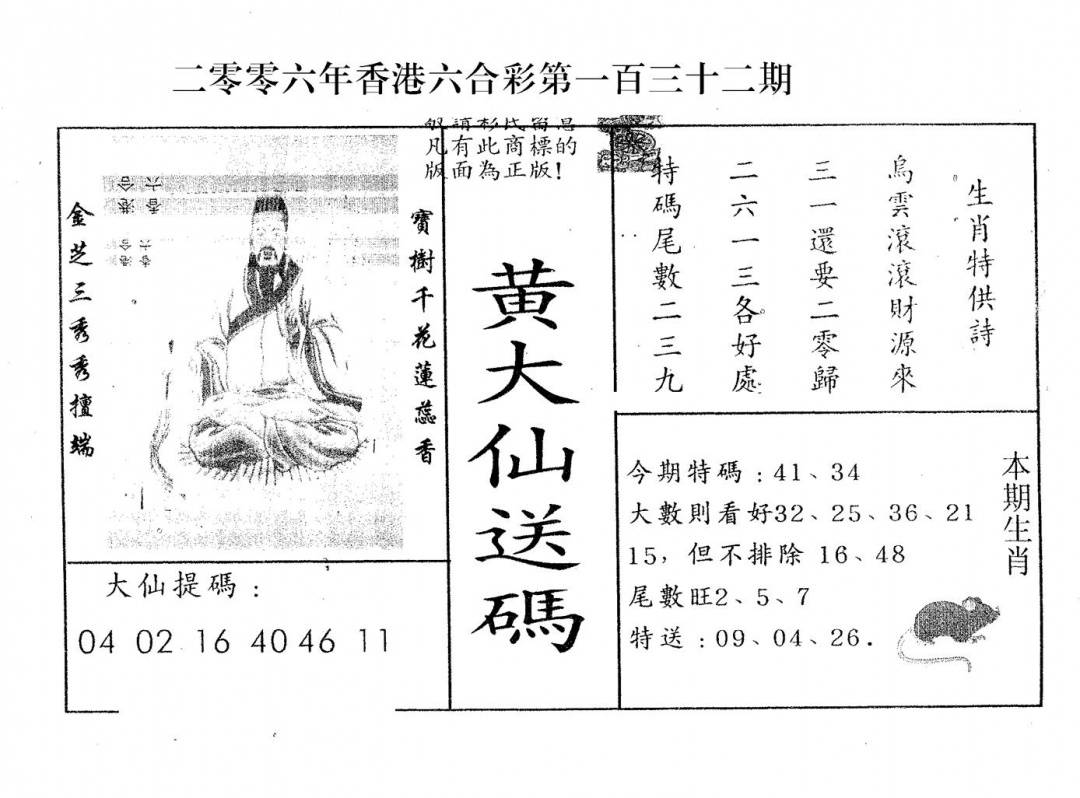 二零零六年香港六合彩第一百三十二期
凡有此商標的
版面為正版!
寶樹千花蓮蕊香
金芝三秀秀擅端
香港六合
大仙提碼:
04 02 16 40 46 11
黄大仙送碼
生肖特供詩
烏雲滾滾財源來
三一還要二零歸
二六一三各好處
特碼尾數二三九
本期生肖
今期特碼:41、34
大數則看好32、25、36、21
15,但不排除 16、48
尾數旺2、5、7
特送:09、04、26.